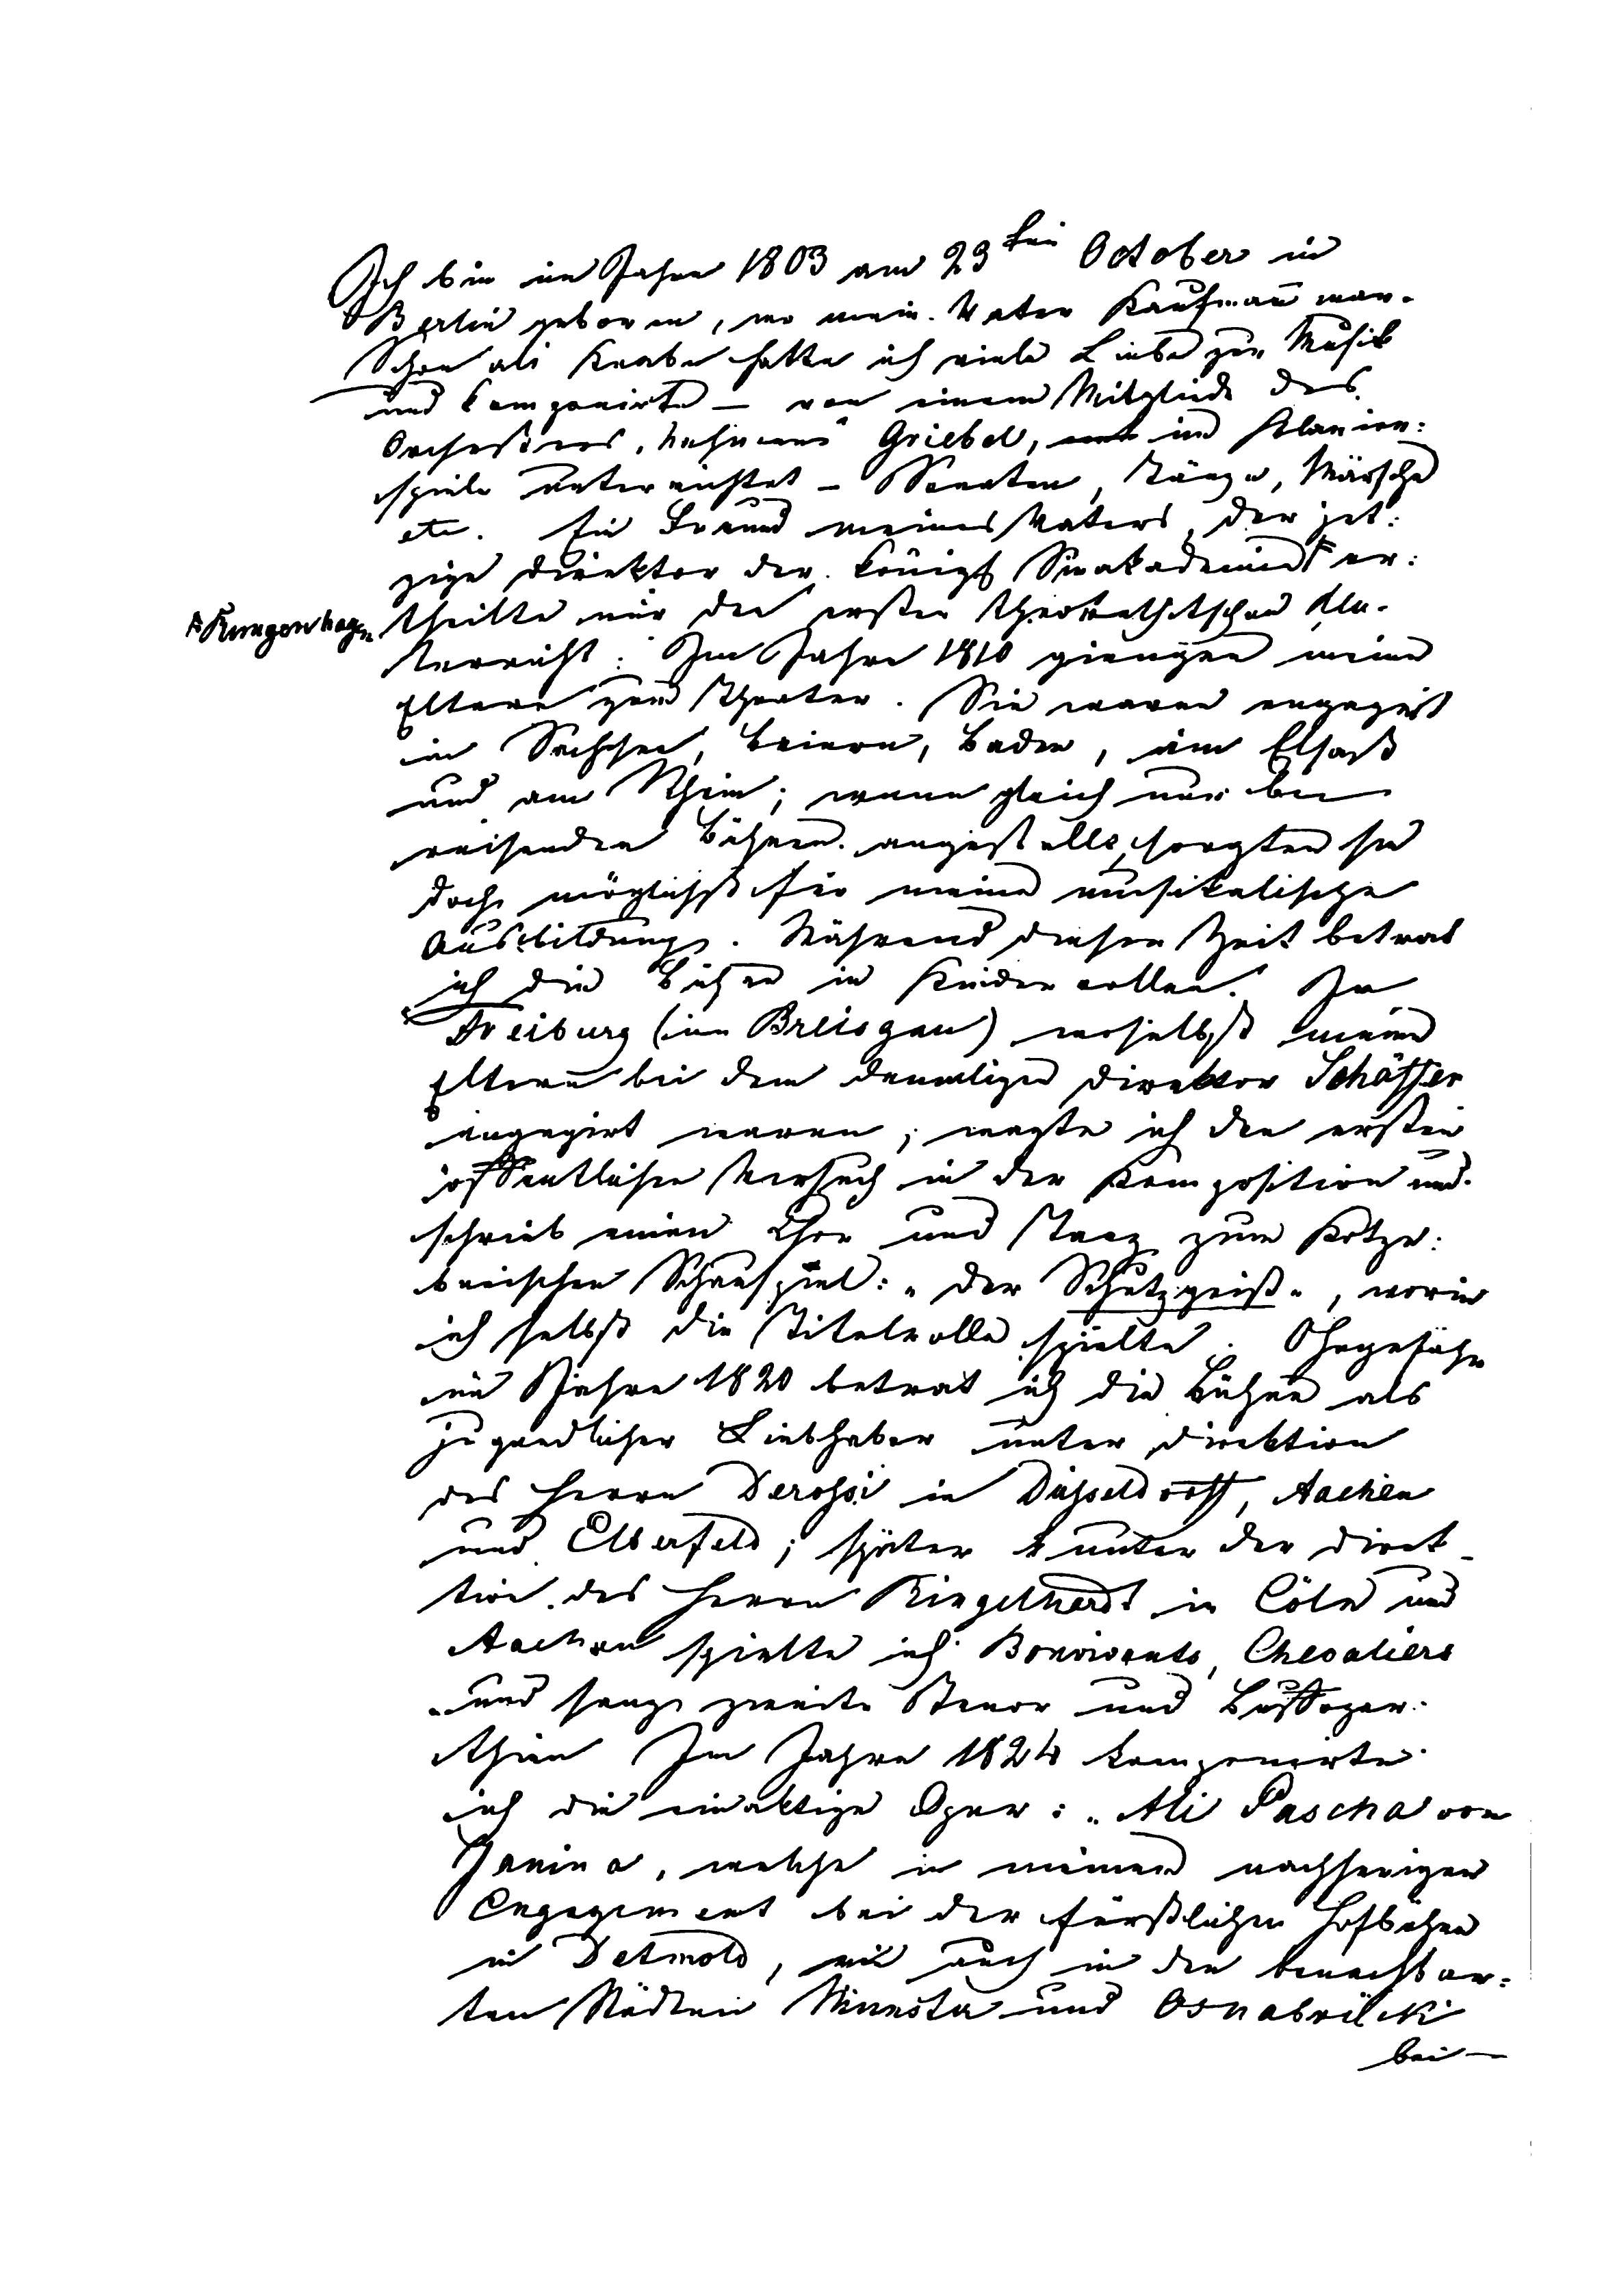 Ich bin im Jahre 1803 am 23ten October in
Berlin geboren, wo mein Vater Kaufmann war.
Schon als Knabe hatte ich viele Liebe zur Musik
und komponirte — von einem Mitgliede des
Orchesters, Nahmens Griebel, im Klavier:
spiele unterrichtet — Sonaten, Tänze, Märsche
etc. Ein Freund meines Vaters, der jet:
zige Direktor der Königl Sinakademie er:
*Rungenhagen
theilte mir den ersten theorethitschen Un-
terricht. Im Jahre 1810 giengen meine
Eltern zum Theater. Sie waren engagirt
in Sachsen, Baiern, Baden, im Elsaß
und am Rhein; wenn gleich nur bei
reisenden Bühnen angestellt, sorgten sie
doch möglichst für meine musikalische
Ausbildung. Während dieser Zeit betrat
ich die Bühne in Kinderrollen. In
Freiburg (im Breisgau) woselbst meine
Eltern bei dem damaligen Direktor Schäffer
engagirt waren, wagte ich den ersten
öffentlichen Versuch in der Komposition und
schrieb einen Chor und Tanz zum Kotze:
bueischen Schauspiel: „Der Schutzgeist", worin
ich selbst die Titelrolle spielte. Ohngefähr
im Jahre 1820 betrat ich die Bühne als
jugendlicher Liebhaber unter Direktion
des Herrn Derossi in Düsseldorff, Aachen
und Elberfeld; später unter der Direk-
tion des Herrn Ringelhardt in Cöln und
Aachen spielte ich Bonvivants, Chevaliers
und sang zweite Tenor und Buffopar:
thien Im Jahre 1824 komponirte
ich die einaktige Oper: „Ali Pascha von
Janina, welche in meinem nachherigen
Engagement bei der fürstlichen Hofbühne
in Detmold, wie auch in den benachbar:
ten Städten Münster und Osnabrück
bei —